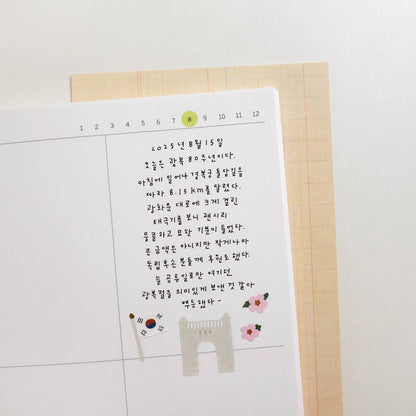 1 2 3 4 5 6 7 8 9 10 11 12
2025년 8월 15일
오늘은 광복 80주년이다.
아침에 일어나 경복궁 돌담길을
따라 8.15km를 달렸다.
광화문 대로에 크게 걸린
태극기를 보니 괜시리
뭉클하고 묘한 기분이 들었다.
큰 금액은 아니지만 작게나마
독립후손분들께 후원도 했다.
늘 공휴일로만 여기던
광복절을 의미있게 보낸 것 같아
뿌듯했다-